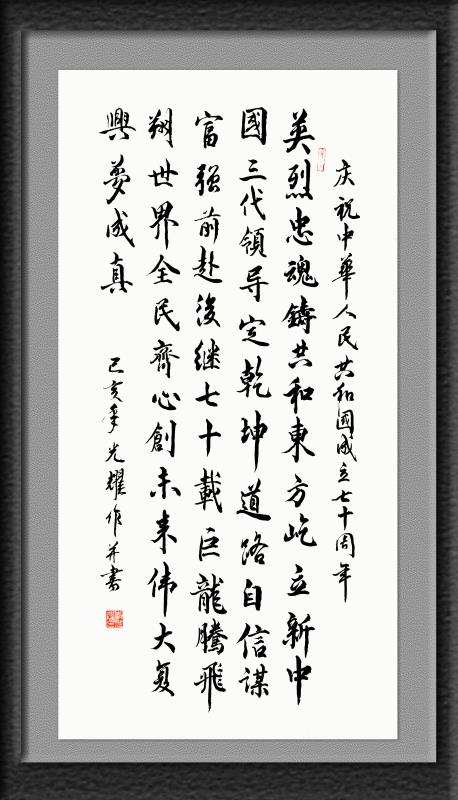 庆祝中華人民共和國成立七十周年
英烈忠魂鑄共和東方屹立新中
國三代領导定乾坤道路自信谋
富强前赴後继七十載巨龍騰飛
翔世界全民齊心創未来伟大复
興夢成真
己亥年光耀作并書